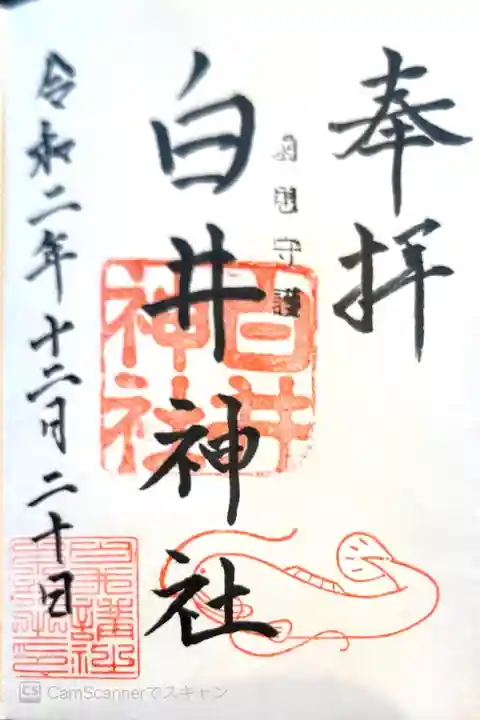 奉拝
歯患守護
白井神社
白井神社
令和二年十二月二十日
CS CamScannerでスキャン